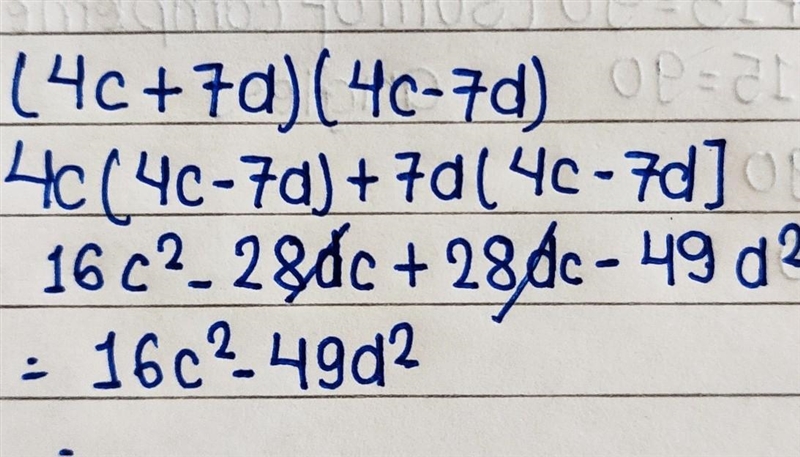 (4c+7d)(4c-7d)
4c(4c-7d)+7d(4c-7d]
16c²-28dc+28dc-49d²
=16c²-49d²